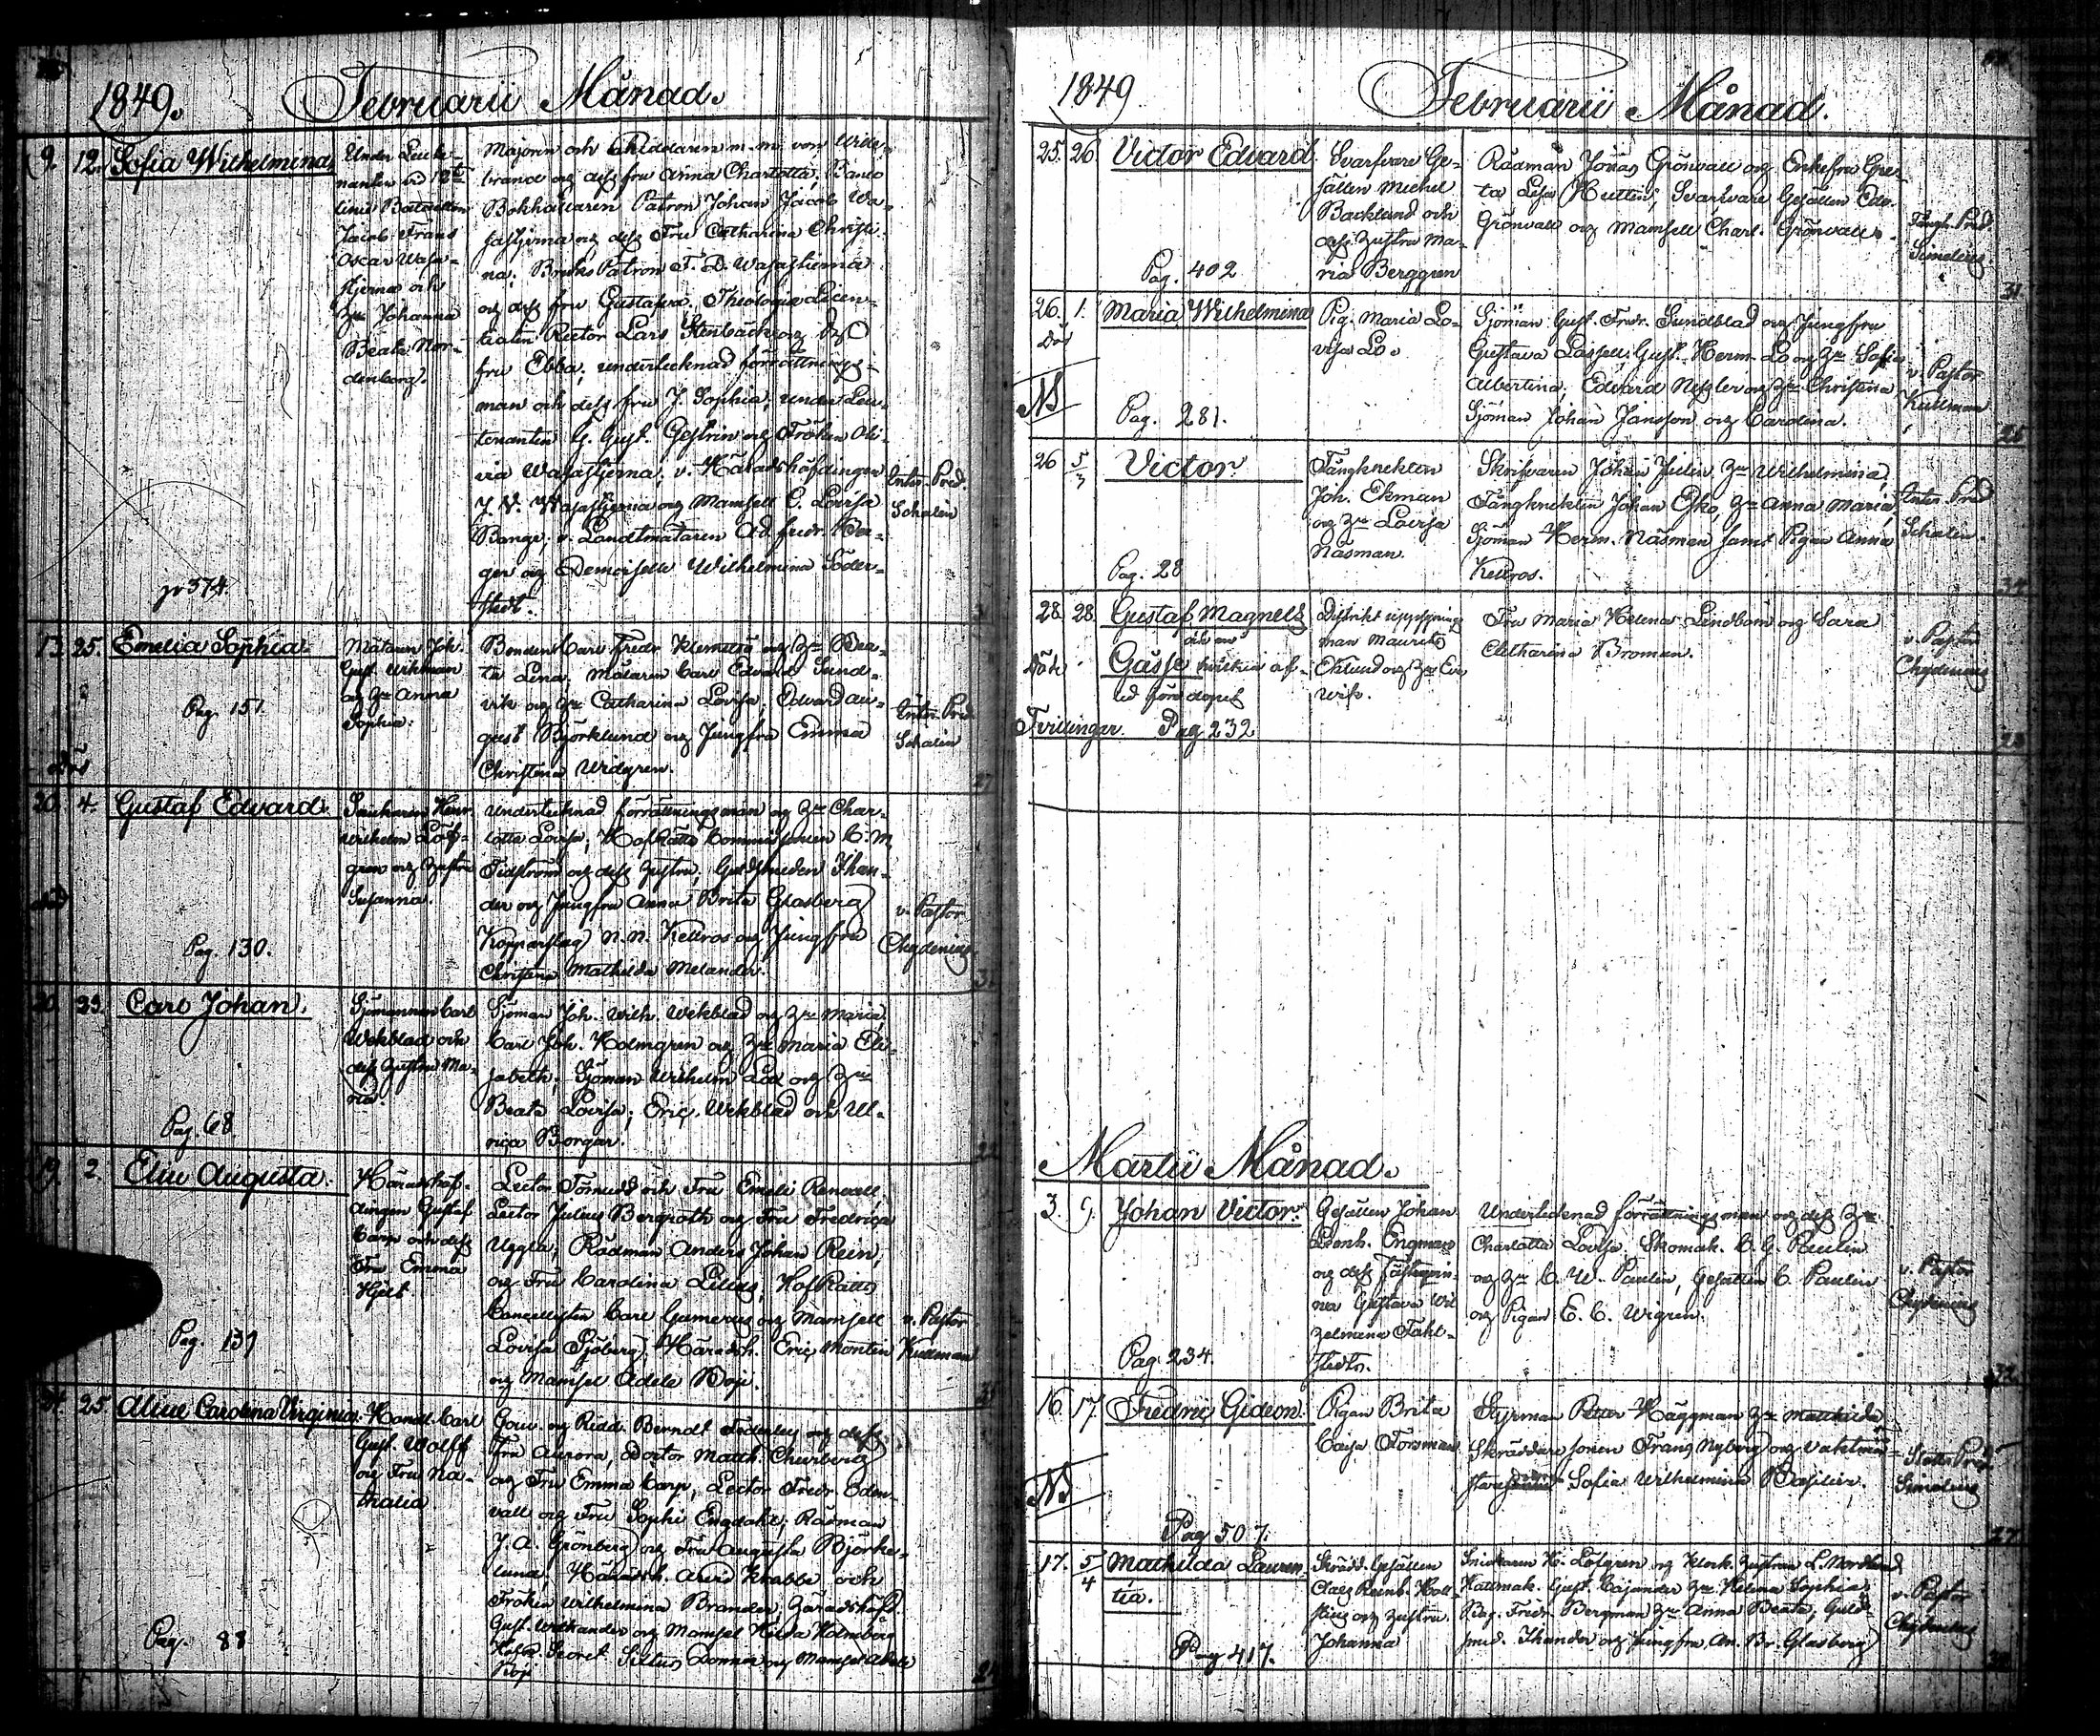 1849. Februarii Månad.
9. 12. Sofia Wilhelmina
jv 574.
Under Leute-
nanten vid
linie Bataillon
Jacob Frans
Oscar Wasa-
stjerna och
Johanna
Beata Nor-
denborg.
Majoren och Riddaren m. m. von Wilde-
brand och dess fru Anna Charlotta, Banco
Bokhållaren Patron Johan Jacob Wa-
sastjerna och dess Fru Catharina Christi-
na; Bruks Patron F. D. Wasastjerna
och dess fru Gustafva. Theologiæ Licen-
tiaten Rector Lars Stenbäck och
fru Ebba, undertecknad förrättnings-
man och dess fru J. Sophia, under Leu-
tenanten G. Gust. Gestrin och Fröken Oli-
via Wasastjerna; v. Häradshöfdingen
J. V. Wasastjerna och Mamsell C. Lovisa
Bange; v. Landtmätaren Ad. Fredr. Ber-
ger och Demoiselle Wilhelmina Söder-
stedt.
Inter. Pred.
Schalin
13. 25. Emelia Sophia
Pag. 151
Målaren Joh.
Gust. Wikman
och Anna
Sophia.
Bonden Carl Fredr. Klemetsö och Bea-
ta Lena; Målaren Carl Edvard Sund-
vik och Catharina Lovisa; Edvard Au-
gust Björklund och Jungfru Emma
Christina Widgren.
Inter. Pred.
Schalin
27
20. 4. Gustaf Edvard.
Pag. 130.
Snickaren Henr.
Wilhelm Löf-
gren och hustru
Susanna.
Undertecknad förrättningsman och Char-
lotta Lovisa; Hofrätts Commissarien C. M.
Tidström och dess hustru; Guldsmeden Than-
der och Jungfru Anna Brita Glasberg
Kopparslag. N. N. Kellros och Jungfru
Christina Mathilda Melander.
v. Pastor
Chydenius
20. 23. Carl Johan.
Pag. 68
Sjömannen Carl
Wekblad och
dess hustru Ma-
ria.
Sjöman Joh. Wilh. Wekblad och Maria,
Carl Joh. Holmgren och Maria Eli-
sabeth; Sjöman Wilhelm Lod och
Beata Lovisa; Eric Wekblad och Ul-
rica Borgar.
19. 2. Elin Augusta.
Pag. 137
Häradshöf-
dingen Gustaf
Carp och dess
Fru Emma
Hjelt
Lector Törnudd och Fru Emeli Renvall,
Lector Julius Bergroth och Fru Fredrica
Uggla; Rådman Anders Johan Rein,
och Fru Carolina Lilius; Hof Rätts
Cancellisten Carl Gumerus och Mamsell
Lovisa Sjöberg; Häradsh. Eric Montin
och Mamsel Adele Boje.
v. Pastor
Kullman
25 Alina Carolina Virginia.
Pag. 88
Handl. Carl
Gust. Wolff
och Fru Na-
thalia
Gouv. och Ridd. Berndt Federley och dess
Fru Aurora, Doctor Matth. Churberg
och Fru Emma Carp, Lector Fredr. Oden-
vall och Fru Sophi Engdahl; Rådman
J. A. Grönberg och Fru Augusta Björke-
lund; Häradsh. Alfred Krabbe och
Fröken Wilhelmina Brander; Häradshöfd.
Gust. Welander och Mamsel Hilda Holmberg
Hofr. Secret. Silius Donner och Mamsel Adele
Boje
1849 Februarii Månad.
25. 26. Victor Edvard.
Pag. 402
Svarfvare Ge-
sällen Michel
Backlund och
dess hustru Ma-
ria Berggren
Rådman Jonas Grönvall och Enkefru Gre-
ta Lisa Hellin; Svarfvare Gesällen Edv.
Grönvall och Mamsell Charl. Grönvall.
Fängh. Pred.
Simelius.
31
26. 1. Maria Wilhelmina
Död
NB
Pag. 281.
Pig. Maria Lo-
visa Lo.
Sjöman Gust. Fredr. Sundblad och Jungfru
Gustava Lassell; Gust. Herm. Lo och Sofia
Albertina; Edvard Netzler och Christina
Sjöman Johan Jansson och Carolina.
v. Pastor
Kullman
25
26 5/3 Victor.
Pag. 28
Fångknekten
Joh. Ekman
och Lovisa
Näsman.
Skrifvaren Johan Julin, Wilhelmina,
Fångknekten Johan Esko, Anna Maria,
Sjöman Herm. Näsman samt Pigan Anna
Kellros.
Inter. Pred
Schalin.
34
28. 28. Gustaf Magnells
och en
Gosse hvilken af-
led före dopet
Tvillingar. Pag 232
Distrikt uppsynings
man Maurits
Eklund och Eva
Wik.
Fru Maria Helena Lindbom och Sara
Catharina Broman.
v. Pastor
Chydenius
28
Martii Månad.
3. 9. Johan Victor.
Pag. 234.
Gesällen Johan
Leonh. Engman
och dess Fästeqvin-
na Gustava Wil-
helmina Fahl-
stedt.
Undertecknad förrättningsman och dess
Charlotta Lovisa, Skomak. C. G. Paulin
och C. W. Paulin, Gesällen C. Paulin
och Pigan E. C. Wigren.
v. Pastor
Chydenius
32
16. 17. Fredric Gideon.
NB
Pag 507.
Pigan Brita
Caisa Forsman
Styrman Petter Häggman Mathilda
Skräddare sonen Frans Nyberg och Vaktmä-
stare Sofia Wilhelmina Basilier.
Slotts Pred
Simelius
27
17. 5/4 Mathilda Lauren-
tia.
Pag 417.
Skrädd. Gesällen
Claes Reinh. Holl-
sting och hustru
Johanna
Snickaren H. Löfgren och Klock. hustrun L. Nordlund
Hattmak. Gust. Cajander Helena Sophia,
Bag. Fredr. Bergman Anna Beata; Guld-
smed. Thander och Jungfru An. Br. Glasberg
v. Pastor
Chydenius